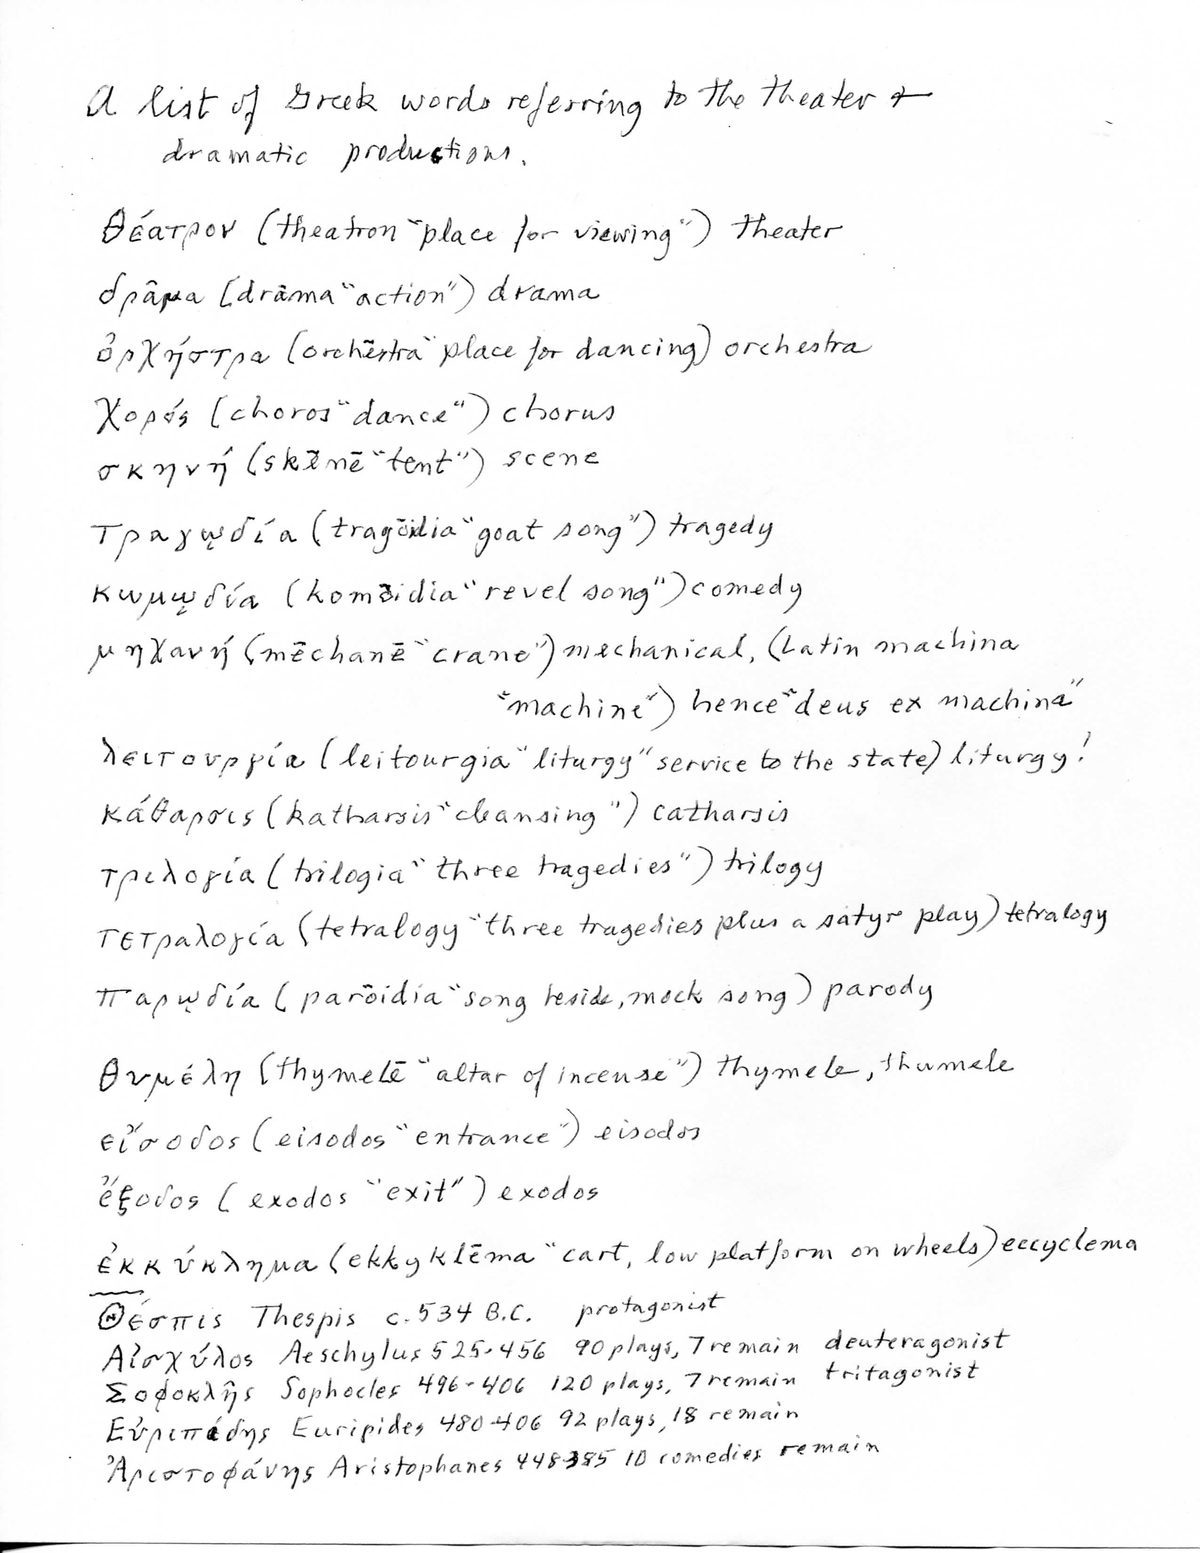 A list of Greek words referring to the theater +
dramatic productions.
θέατρον (theatron "place for viewing") theater
δρᾶμα (drāma "action") drama
ὀρχήστρα (orchēstra "place for dancing) orchestra
χορός (choros "dance") chorus
σκηνή (skēnē "tent") scene
τραγῳδία (tragōidia "goat song") tragedy
κωμῳδία (komōidia "revel song") comedy
μηχανή (mēchanē "crane") mechanical, (Latin machina
"machine") hence "deus ex machina"
λειτουργία (leitourgia "liturgy" service to the state) liturgy!
κάθαρσις (katharsis "cleansing") catharsis
τριλογία (trilogia "three tragedies") trilogy
τετραλογία (tetralogy "three tragedies plus a satyr play) tetralogy
παρῳδία (parōidia "song beside, mock song) parody
θυμέλη (thymelē "altar of incense") thymele, thumele
εἴσοδος (eisodos "entrance") eisodos
ἔξοδος (exodos "exit") exodos
ἐκκύκλημα (ekkyklēma "cart, low platform on wheels) eccyclema
Θέσπις Thespis c. 534 B.C. protagonist
Αἰσχύλος Aeschylus 525-456 90 plays, 7 remain deuteragonist
Σοφοκλῆς Sophocles 496-406 120 plays, 7 remain tritagonist
Εὐριπίδης Euripides 480-406 92 plays, 18 remain
Ἀριστοφάνης Aristophanes 448-385 10 comedies remain